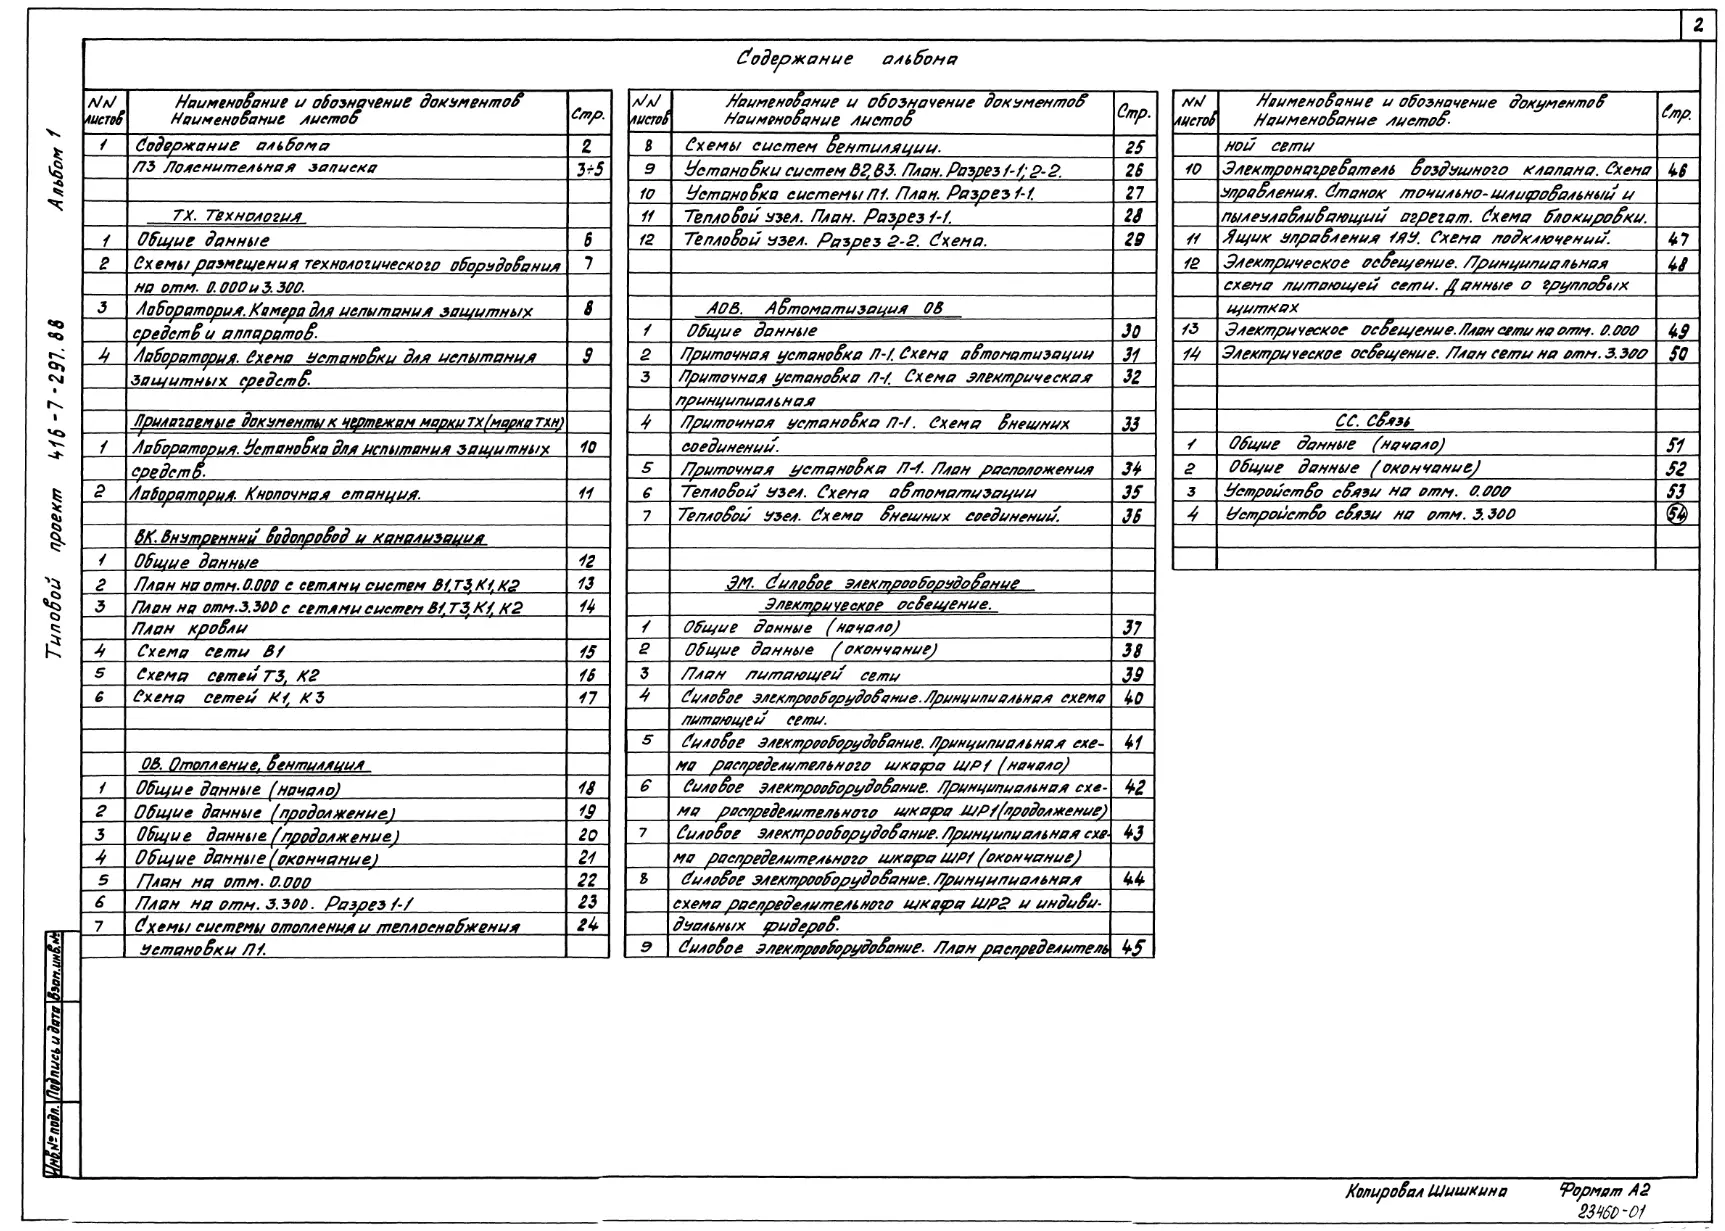 2
Содержание альбома
Альбом 1
Типовой проект 416-7-297.88
NN листов Наименование и обозначение документов Наименование листов Стр.
1 Содержание альбома 2
ПЗ Пояснительная записка 3÷5
ТХ. Технология
1 Общие данные 6
2 Схемы размещения технологического оборудования 7
на отм. 0.000 и 3.300.
3 Лаборатория. Камера для испытания защитных 8
средств и аппаратов.
4 Лаборатория. Схема установки для испытания 9
защитных средств.
Прилагаемые документы к чертежам марки ТХ (марка ТХН)
1 Лаборатория. Установка для испытания защитных 10
средств.
2 Лаборатория. Кнопочная станция. 11
ВК. Внутренний водопровод и канализация
1 Общие данные 12
2 План на отм. 0.000 с сетями систем В1, Т3, К1, К2 13
3 План на отм. 3.300 с сетями систем В1, Т3, К1, К2 14
План кровли
4 Схема сети В1 15
5 Схема сетей Т3, К2 16
6 Схема сетей К1, К3 17
ОВ. Отопление, вентиляция
1 Общие данные (начало) 18
2 Общие данные (продолжение) 19
3 Общие данные (продолжение) 20
4 Общие данные (окончание) 21
5 План на отм. 0.000 22
6 План на отм. 3.300. Разрез 1-1 23
7 Схемы системы отопления и теплоснабжения 24
установки П1.
NN листов Наименование и обозначение документов Наименование листов Стр.
8 Схемы систем вентиляции. 25
9 Установки систем В2, В3. План. Разрез 1-1; 2-2. 26
10 Установка системы П1. План. Разрез 1-1. 27
11 Тепловой узел. План. Разрез 1-1. 28
12 Тепловой узел. Разрез 2-2. Схема. 29
АОВ. Автоматизация ОВ
1 Общие данные 30
2 Приточная установка П-1. Схема автоматизации 31
3 Приточная установка П-1. Схема электрическая 32
принципиальная
4 Приточная установка П-1. Схема внешних 33
соединений.
5 Приточная установка П-1. План расположения 34
6 Тепловой узел. Схема автоматизации 35
7 Тепловой узел. Схема внешних соединений. 36
ЭМ. Силовое электрооборудование
Электрическое освещение.
1 Общие данные (начало) 37
2 Общие данные (окончание) 38
3 План питающей сети 39
4 Силовое электрооборудование. Принципиальная схема 40
питающей сети.
5 Силовое электрооборудование. Принципиальная схе- 41
ма распределительного шкафа ШР1 (начало)
6 Силовое электрооборудование. Принципиальная схе- 42
ма распределительного шкафа ШР1 (продолжение)
7 Силовое электрооборудование. Принципиальная схе- 43
ма распределительного шкафа ШР1 (окончание)
8 Силовое электрооборудование. Принципиальная 44
схема распределительного шкафа ШР2 и индиви-
дуальных фидеров.
9 Силовое электрооборудование. План распределитель 45
NN листов Наименование и обозначение документов Наименование листов. Стр.
ной сети
10 Электронагреватель воздушного клапана. Схема 46
управления. Станок точильно-шлифовальный и
пылеулавливающий агрегат. Схема блокировки.
11 Ящик управления 1ЯУ. Схема подключений. 47
12 Электрическое освещение. Принципиальная 48
схема питающей сети. Данные о групповых
щитках
13 Электрическое освещение. План сети на отм. 0.000 49
14 Электрическое освещение. План сети на отм. 3.300 50
СС. Связь
1 Общие данные (начало) 51
2 Общие данные (окончание) 52
3 Устройство связи на отм. 0.000 53
4 Устройство связи на отм. 3.300 54
Инв.№ подл. Подпись и дата Взам.инв.№
Копировал Шишкина Формат А2
23460-01